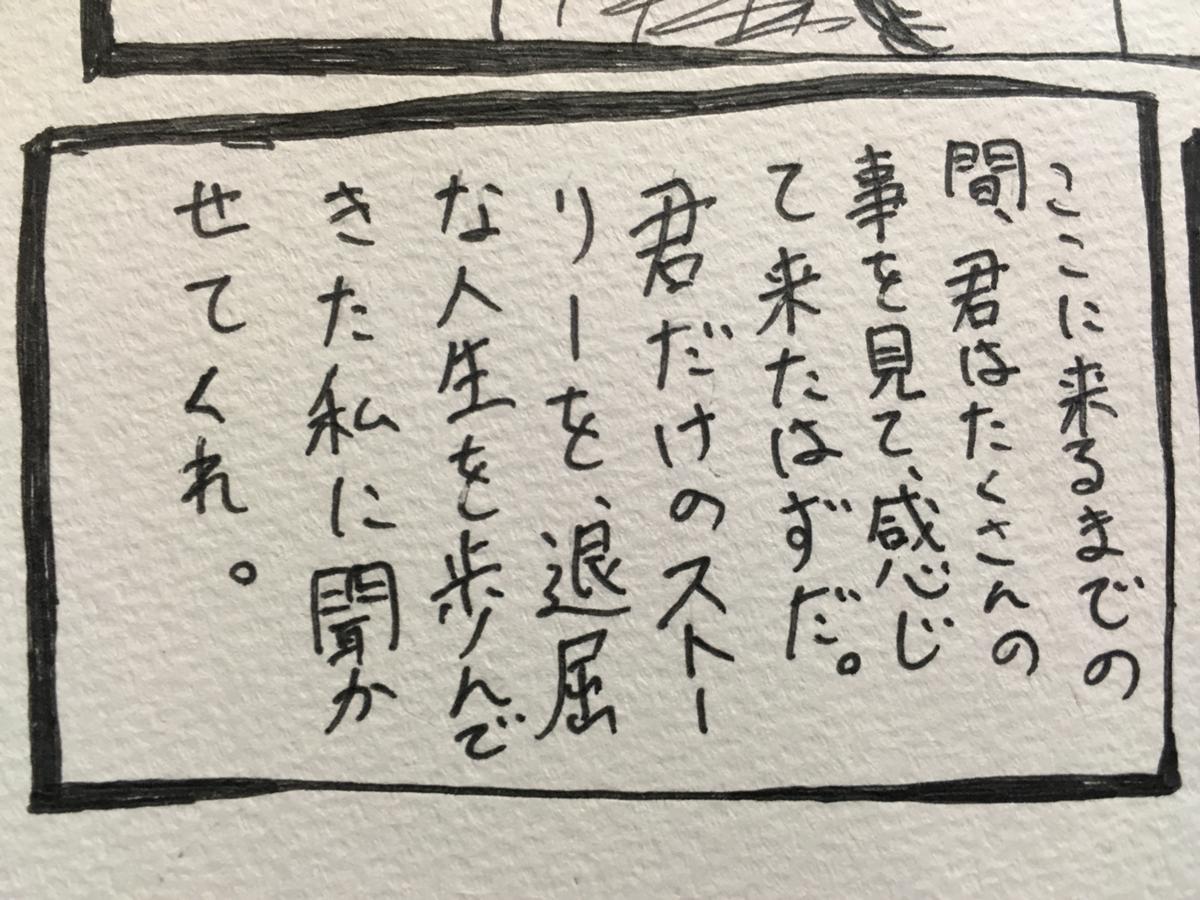 ここに来るまでの
間、君はたくさんの
事を見て、感じ
て来たはずだ。
君だけのストー
リーを、退屈
な人生を歩んで
きた私に聞か
せてくれ。